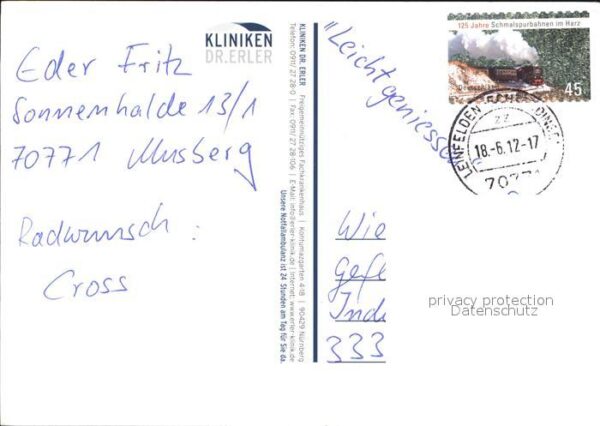 Eder Fritz
Sonnenhalde 13/1
70771 Musberg
Radwunsch:
Cross
KLINIKEN
DR. ERLER
KLINIKEN DR. ERLER Freigemeinnütziges Fachkrankenhaus | Kontumazgarten 4-18 | 90429 Nürnberg
Telefon: 0911/ 27 28-0 | Fax: 0911/ 27 28-106 | E-Mail: info@erler-klinik.de | Internet: www.erler-klinik.de
Unsere Notfallambulanz ist 24 Stunden am Tag für Sie da.
"Leicht geniessen
125 Jahre Schmalspurbahnen im Harz
Deutschland
45
LEINFELDEN-ECHTERDINGEN
zz
18.-6.12-17
70771
Wie
gefe
Inde
333
privacy protection
Datenschutz